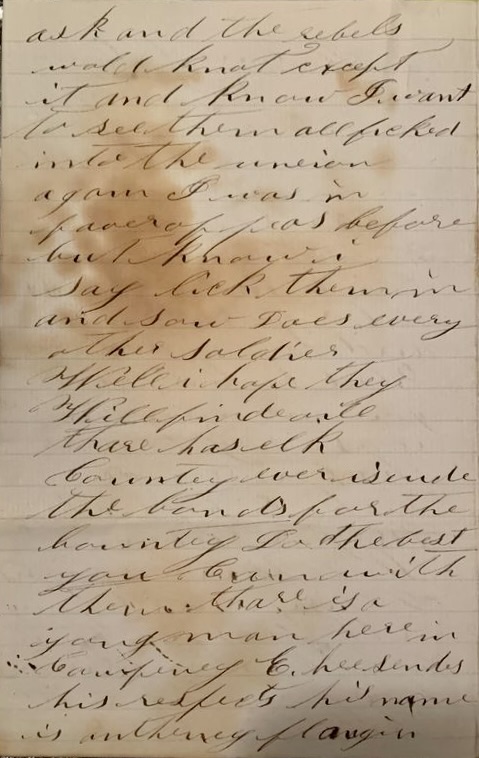 ask and the rebels
wold knot except
it and know I want
to see them all ficked
into the uneion
again I was in
faver of peas before
but know i
say lick them in
and sow Does every
other soldier
Well i hope they
Will finde oile
thare has elk
Countey ever isende
the bonds for the
bountey Do the best
you Can with
them thare is a
young man here in
Compeney E. hee sendes
his respects his name
is antheney flangin